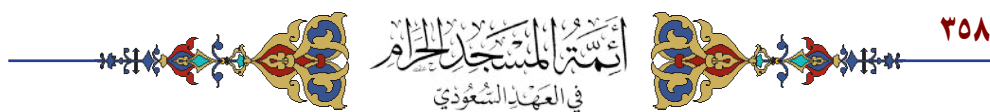 ٣٥٨
أئمة المسجد الحرام
في العهد السعودي